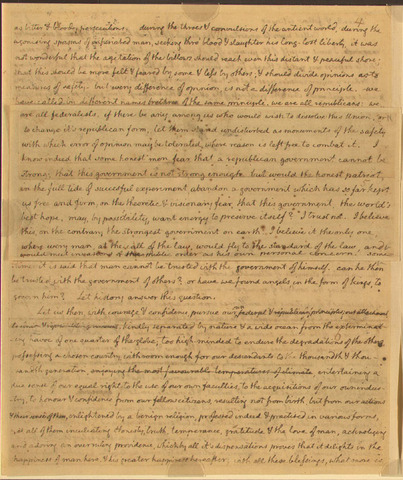 as bitter & bloody persecutions. during the throes & convulsions of the antient world, during the
agonising spasms of infuriated man, seeking thro' blood & slaughter his long lost liberty, it was
not wonderful that the agitation of the billows should reach even this distant & peaceful shore;
that this should be more felt & feared by some & less by others; & should divide opinions as to
measures of safety. but every difference of opinion, is not a difference of principle. we
have called by different names brethren of the same principle. we are all republicans: we
are all federalists. if there be any among us who would wish to dissolve this Union, or
to change it's republican form, let them stand undisturbed as monuments of the safety
with which error of opinion may be tolerated, where reason is left free to combat it. I
know indeed that some honest men fear that a republican government cannot be
strong; that this government is not strong enough. but would the honest patriot,
in the full tide of succesful experiment abandon a government which has so far kept
us free and firm, on the theoretic & visionary fear, that this government, the world's
best hope, may, by possibility, want energy to preserve itself? I trust not. I believe
this, on the contrary, the strongest government on earth. I believe it the only one,
where every man, at the call of the law, would fly to the standard of the law, and
would meet invasions of the public order as his own personal concern. some
times it is said that man cannot be trusted with the government of himself. can he then
be trusted with the government of others? or have we found angels in the form of kings, to
govern him? Let history answer this question.
Let us then, with courage & confidence pursue our federal & republican principles, our attachment
kindly separated by nature & a wide ocean from the exterminat-
ing havoc of one quarter of the globe; too high minded to endure the degradations of the others,
possessing a chosen country, with room enough for our descendants to the thousandth & thou-
sandth generation, enjoying the most favourable temperatures of climate, entertaining a
due sense of our equal right to the use of our own faculties, to the acquisitions of our own indus-
try, to honour & confidence from our fellow citizens resulting not from birth but from our actions
& their sense of them, enlightened by a benign religion, professed indeed & practised in various forms,
yet all of them inculcating honesty, truth, temperance, gratitude, & the love of man, acknoleging
and adoring an overruling providence, which by all it's dispensations proves that it delights in the
happiness of man here, & his greater happiness hereafter; with all these blessings, what more is